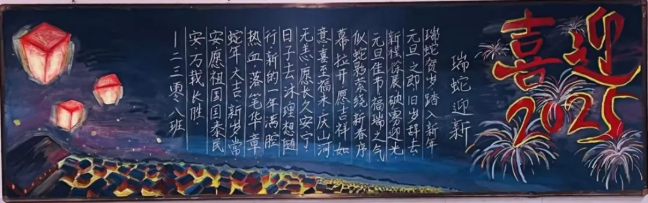 喜迎
2025
瑞蛇迎新
瑞蛇贺岁踏入新年
元旦之即旧岁辞去
新模徐晨破雾迎光
元旦佳节福瑞之气
似蛇影萦绕新春序
幕拉开愿吉祥如
意喜至福来人庆山河
无恙愿长久安宁
日子去沐理想随
行新的一年满腔
热血落笔华章
蛇年大吉新岁当
安愿祖国国泰民
安万载长胜
一二三零八班